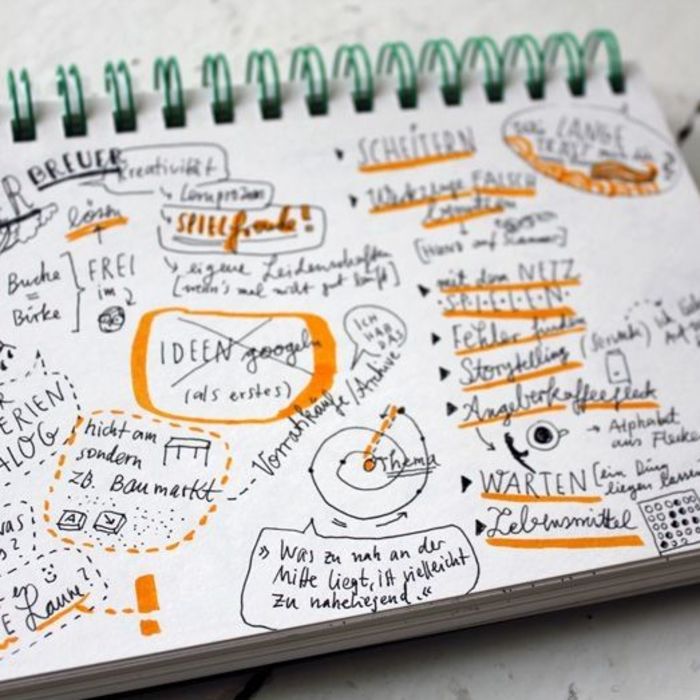 BREUER
Kreativität
lösen
Lernprozess
SPIELfreude!
eigene Leidenschaften
[wenn's mal nicht gut läuft]
Buche
=
Birke
FREI
im
IDEEN googeln
(als erstes)
ICH
HAB
DAS
Vorratskäufe/Archive
nicht am
sondern
zB. Baumarkt
A
Thema
» Was zu nah an der
Mitte liegt, ist vielleicht
zu naheliegend.«
Laune?
SCHEITERN
Werkzeuge FALSCH
benutzen
mit dem NETZ
SPIELEN
Fehler finden
Storytelling
Angeberkaffeefleck
→ Alphabet
aus Flecken
WARTEN [ein Ding
liegen lassen
Lebensmittel
LANGE